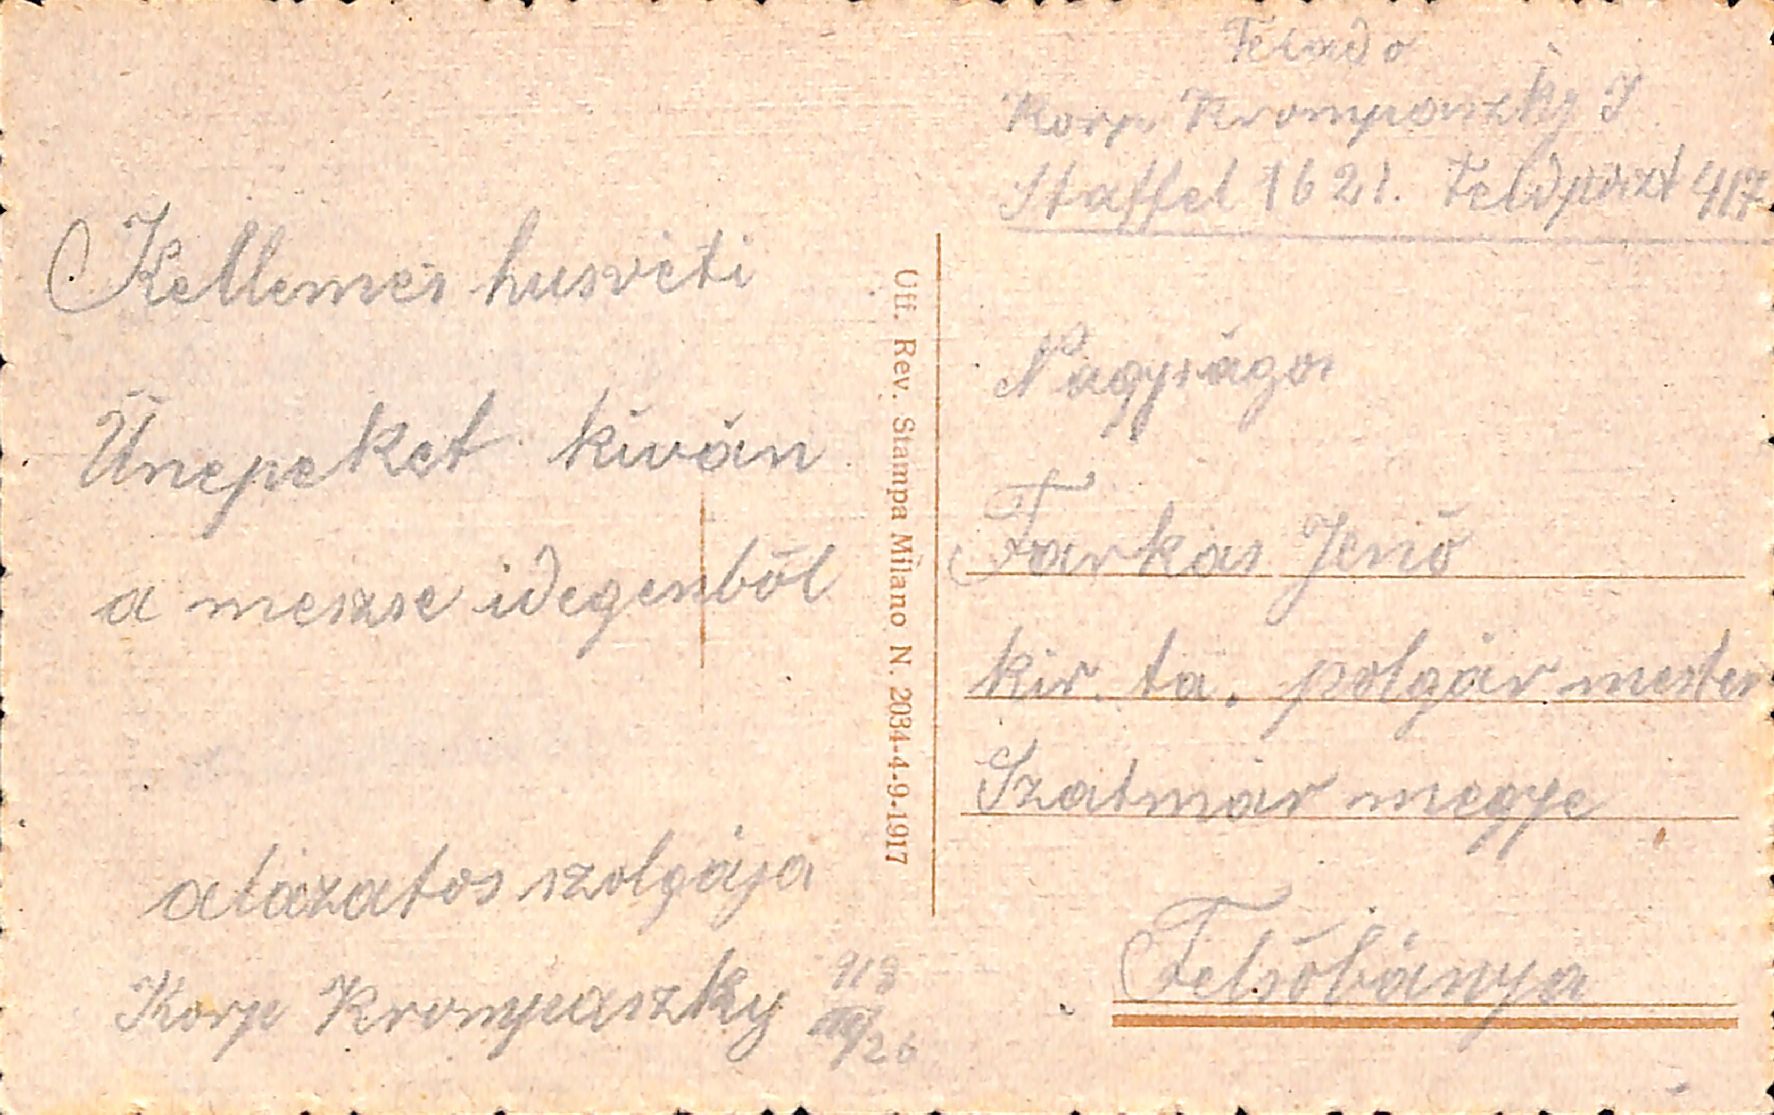 Feladó
Korp. Krompaszky J
Staffel 1621. Feldposzt 417
Kellemes husvéti
Ünepeket kiván
a messze idegenből
alázatos szolgája
Korp Krompaszky 918
III/26
Uff. Rev. Stampa Milano N. 2034-4-9-1917
Nagyságos
Farkas Jenő
kir. ta. polgár mester
Szatmár megye
Felsőbánya